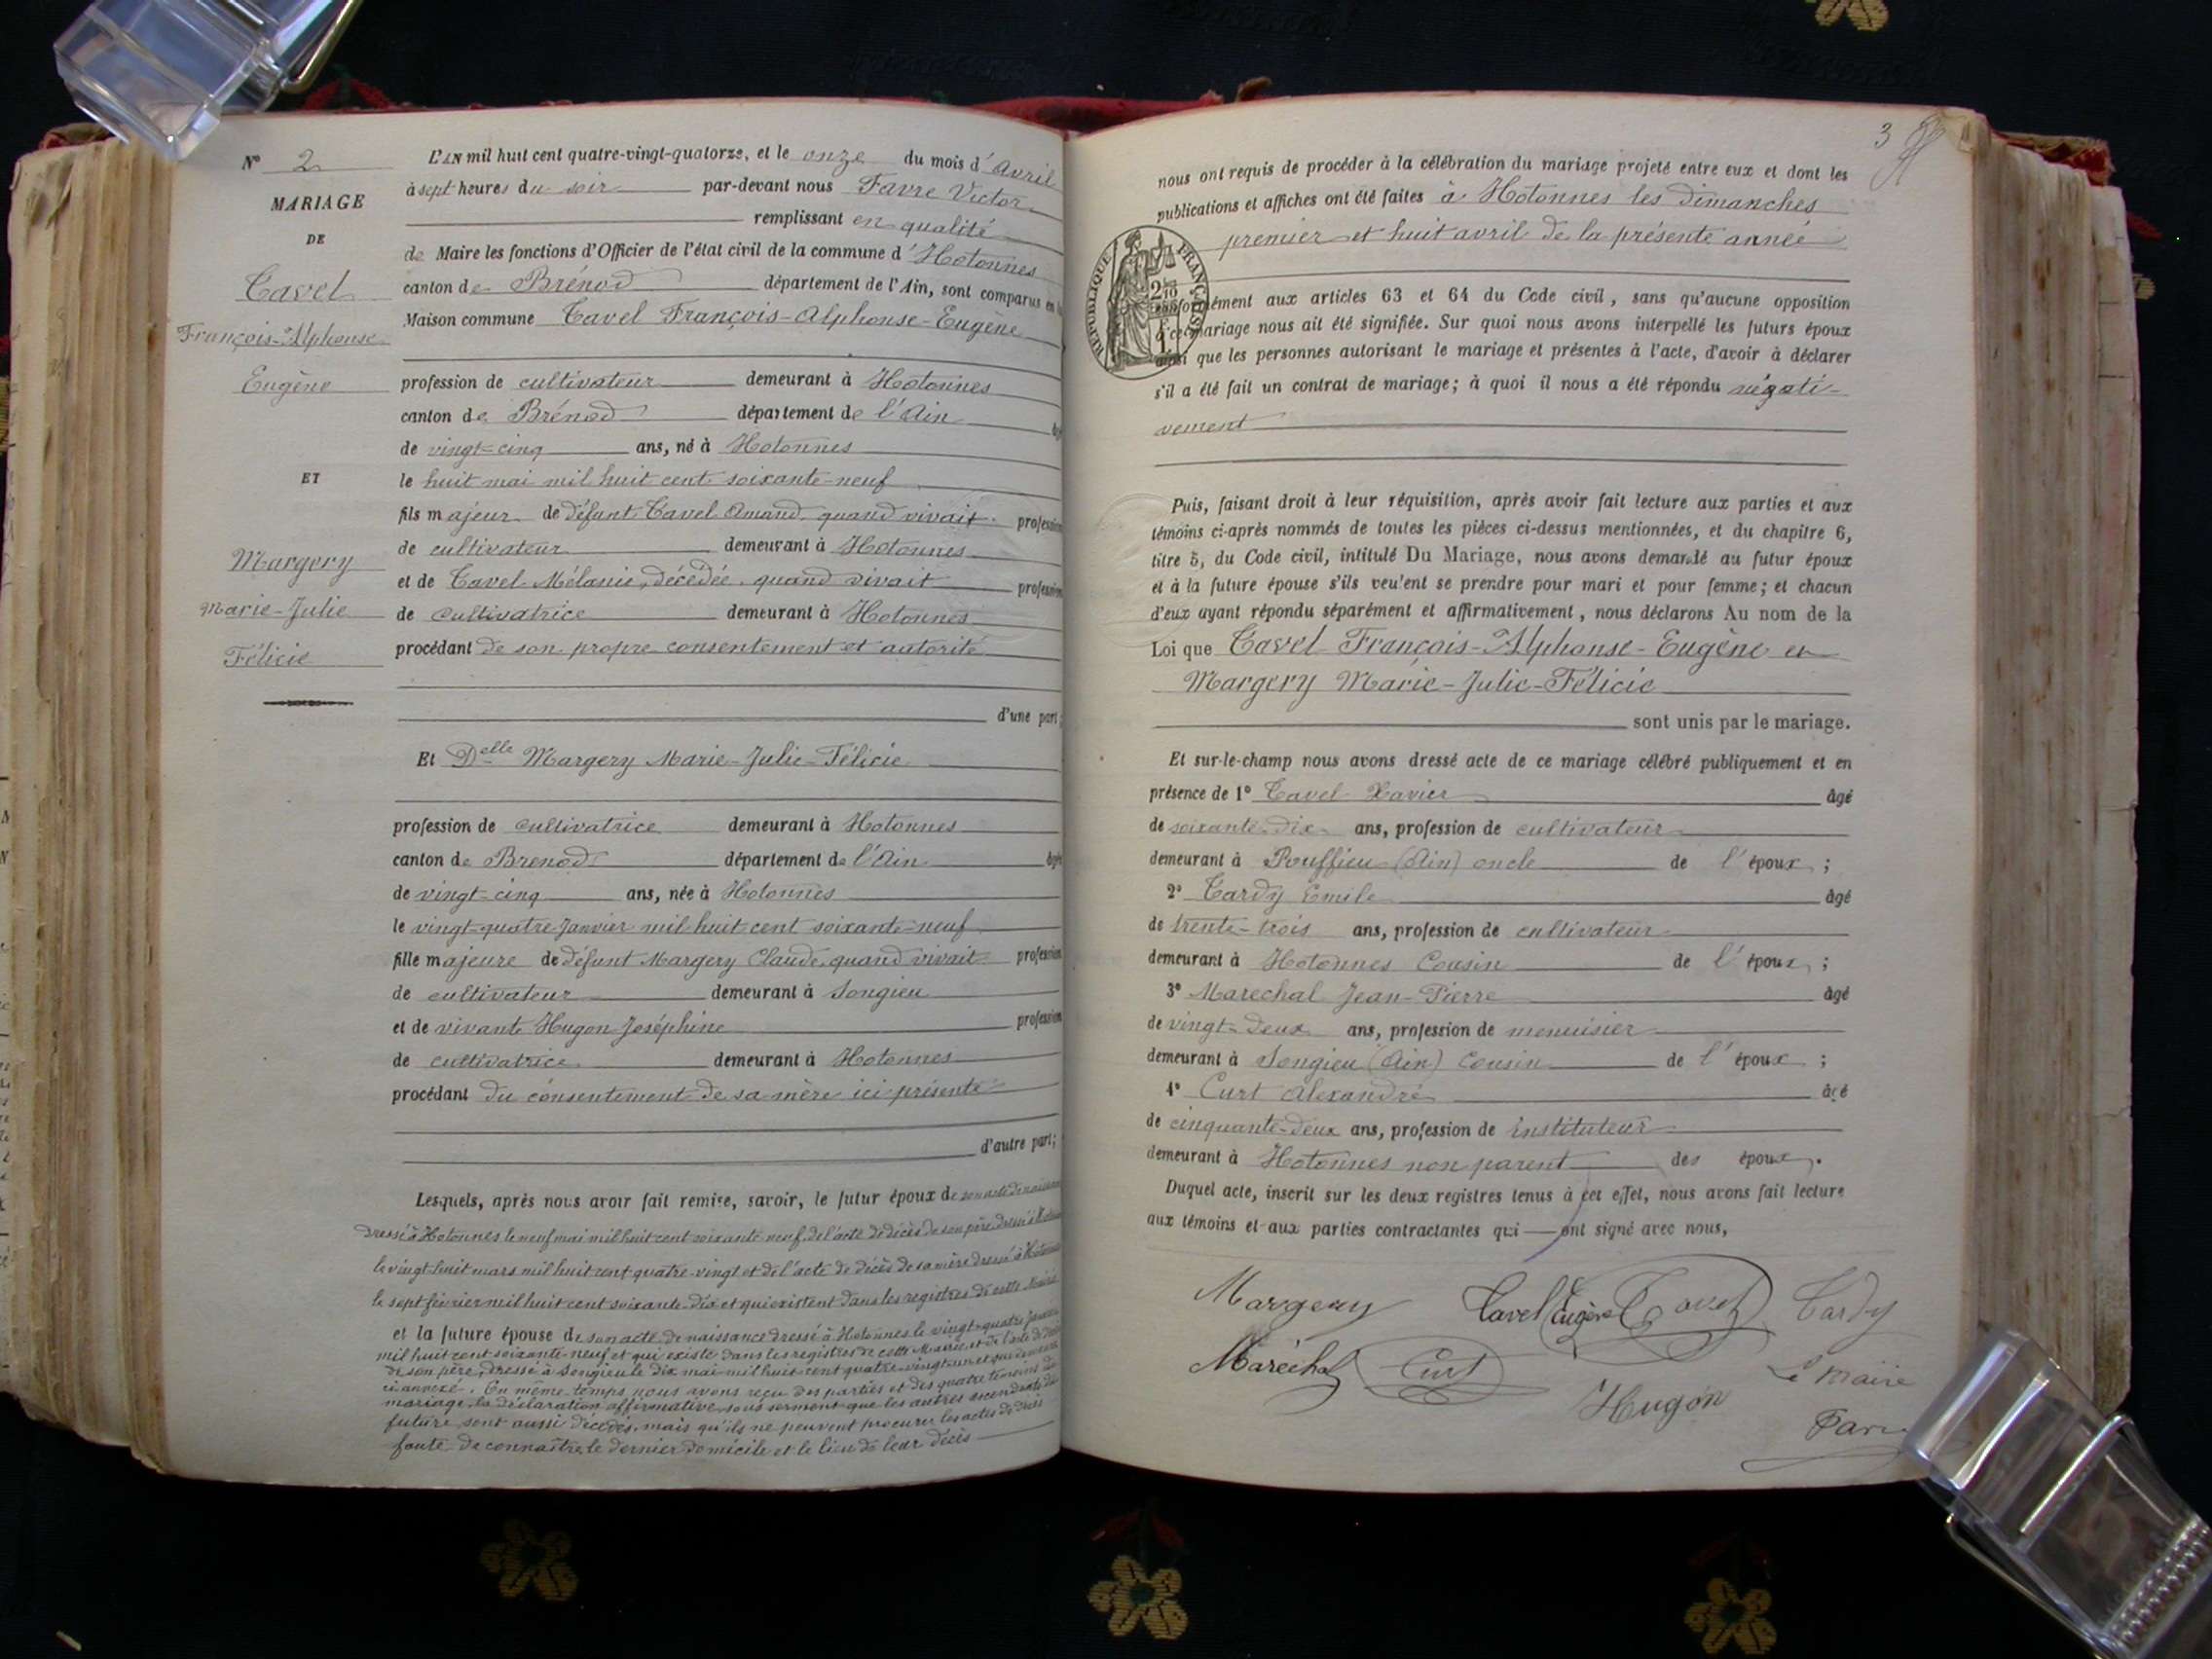 N° 2
MARIAGE
DE
Tavel
François-Alphonse
Eugène
ET
Margery
Marie-Julie
Félicie
L'AN mil huit cent quatre-vingt-quatorze, et le onze du mois d'Avril
à sept heures du soir par-devant nous Favre Victor
remplissant en qualité
de Maire les fonctions d'Officier de l'état civil de la commune d'Hotonnes
canton de Brénod département de l'Ain, sont comparus en
Maison commune Tavel François-Alphonse-Eugène
profession de cultivateur demeurant à Hotonnes
canton de Brénod département de l'Ain
de vingt-cinq ans, né à Hotonnes
le huit mai mil huit cent soixante-neuf
fils majeur de défunt Tavel Amand, quand vivait profession
de cultivateur demeurant à Hotonnes
et de Tavel Mélanie, décédée, quand vivait profession
de cultivatrice demeurant à Hotonnes
procédant de son propre consentement et autorité
d'une part;
Et Delle Margery Marie-Julie-Félicie
profession de cultivatrice demeurant à Hotonnes
canton de Brenod département de l'Ain âgée
de vingt-cinq ans, née à Hotonnes
le vingt-quatre janvier mil huit cent soixante-neuf
fille majeure de défunt Margery Claude, quand vivait profession
de cultivateur demeurant à Songieu
et de vivante Hugon Joséphine profession
de cultivatrice demeurant à Hotonnes
procédant du consentement de sa mère ici présente
d'autre part;
Lesquels, après nous avoir fait remise, savoir, le futur époux de son acte de naissance
dressé à Hotonnes le neuf mai mil huit cent soixante-neuf, de l'acte de décès de son père dressé à Hotonnes
le vingt-huit mars mil huit cent quatre-vingt et de l'acte de décès de sa mère dressé à Hotonnes
le sept février mil huit cent soixante-dix et qui existent dans les registres de cette Mairie
et la future épouse de son acte de naissance dressé à Hotonnes le vingt-quatre janvier
mil huit cent soixante-neuf et qui existe dans les registres de cette Mairie et de l'acte de décès
de son père, dressé à Songieu le dix mai mil huit cent quatre-vingt-un et qui demeure
ci-annexé. En même temps nous avons reçu des parties et des quatre témoins du
mariage, la déclaration affirmative sous serment que les autres ascendants de la
future sont aussi décédés, mais qu'ils ne peuvent procurer les actes de décès
faute de connaître le dernier domicile et le lieu de leur décès
3
nous ont requis de procéder à la célébration du mariage projeté entre eux et dont les
publications et affiches ont été faites à Hotonnes les dimanches
premier et huit avril de la présente année
RÉPUBLIQUE FRANÇAISE
conformément aux articles 63 et 64 du Code civil, sans qu'aucune opposition
à ce mariage nous ait été signifiée. Sur quoi nous avons interpellé les futurs époux
ainsi que les personnes autorisant le mariage et présentes à l'acte, d'avoir à déclarer
s'il a été fait un contrat de mariage; à quoi il nous a été répondu négati-
vement
Puis, faisant droit à leur réquisition, après avoir fait lecture aux parties et aux
témoins ci-après nommés de toutes les pièces ci-dessus mentionnées, et du chapitre 6,
titre 5, du Code civil, intitulé Du Mariage, nous avons demandé au futur époux
et à la future épouse s'ils veulent se prendre pour mari et pour femme; et chacun
d'eux ayant répondu séparément et affirmativement, nous déclarons Au nom de la
Loi que Tavel François-Alphonse-Eugène et
Margery Marie-Julie-Félicie
sont unis par le mariage.
Et sur-le-champ nous avons dressé acte de ce mariage célébré publiquement et en
présence de 1° Tavel Xavier âgé
de soixante-dix ans, profession de cultivateur
demeurant à Rouffieu (Ain) oncle de l'époux;
2° Tardy Emile âgé
de trente-trois ans, profession de cultivateur
demeurant à Hotonnes Cousin de l'époux;
3° Marechal Jean-Pierre âgé
de vingt-deux ans, profession de menuisier
demeurant à Songieu (Ain) Cousin de l'époux;
4° Curt Alexandre âgé
de cinquante-deux ans, profession de instituteur
demeurant à Hotonnes non parent des époux.
Duquel acte, inscrit sur les deux registres tenus à cet effet, nous avons fait lecture
aux témoins et aux parties contractantes qui ont signé avec nous,
Margery Tavel Eugène Tavel Tardy
Maréchal Curt Hugon Le Maire
Favre